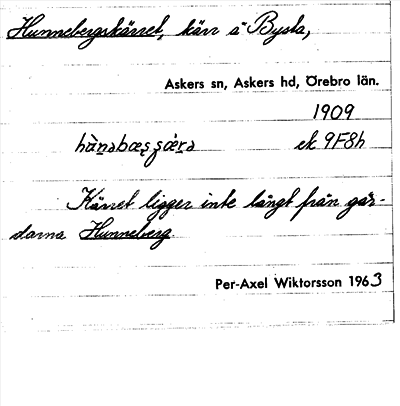 Hunnebergskärret, kärr å Bysta,
Askers sn, Askers hd, Örebro län.
1909
ek 9F8h
Kärret ligger inte långt från går-
darna Hunneberg
Per-Axel Wiktorsson 1963